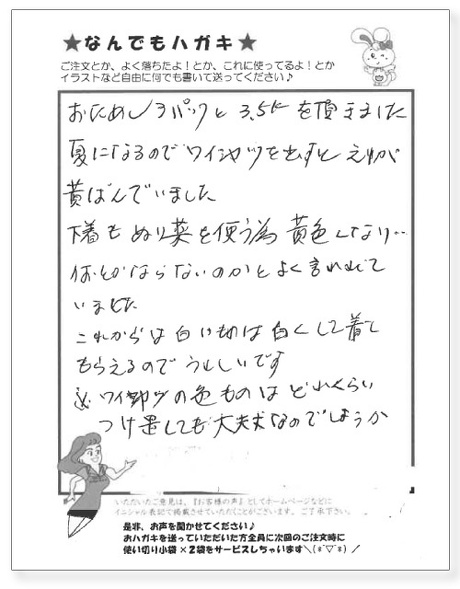 ★なんでもハガキ★
ご注文とか、よく落ちたよ！とか、これに使ってるよ！とか
イラストなど自由に何でも書いて送ってください♪
おためし3パックと3.5kを頂きました
夏になるのでワイシャツを出すとえりが
黄ばんでいました
下着もぬり薬を使う為黄色くなり‥
何とかならないのかとよく言われて
いました
これからは白い物は白くして着て
もらえるのでうれしいです
ワイシャツの色ものはどれくらい
つけ置しても大丈夫なのでしょうか
いただいたご意見は、『お客様の声』としてホームページなどに
イニシャル表記で掲載させていただくことがございます。ご了承下さい。
是非、お声を聞かせてください♪
おハガキを送っていただいた方全員に次回のご注文時に
使い切り小袋×2袋をサービスしちゃいます＼(*ˇ▽ˇ*)／